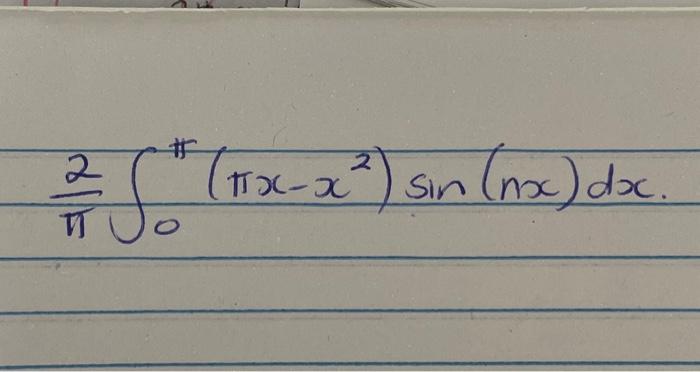 2/π ∫₀^π (πx-x²) sin(nx)dx.